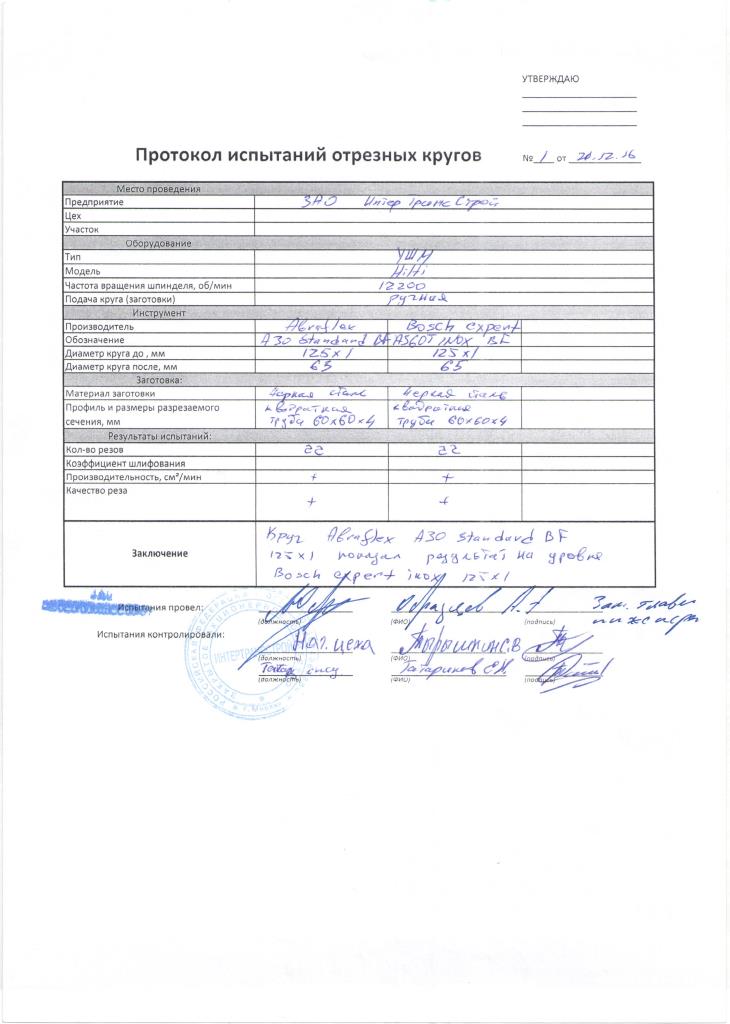 УТВЕРЖДАЮ
Протокол испытаний отрезных кругов
№ 1 от 20.12.16
Место проведения
Предприятие ЗАО ИнтерТрансСтрой
Цех
Участок
Оборудование
Тип УШМ
Модель Hilti
Частота вращения шпинделя, об/мин 12200
Подача круга (заготовки) ручная
Инструмент
Производитель Abraflex Bosch expert
Обозначение A30 Standard BF AS60T INOX BF
Диаметр круга до , мм 125x1 125x1
Диаметр круга после, мм 65 65
Заготовка:
Материал заготовки Черная сталь Черная сталь
Профиль и размеры разрезаемого квадратная квадратная
сечения, мм труба 60x60x4 труба 60x60x4
Результаты испытаний:
Кол-во резов 22 22
Коэффициент шлифования
Производительность, см²/мин + +
Качество реза
+ +
Круг Abraflex A30 Standard BF
Заключение 125x1 показал результат на уровне
Bosch expert inox 125x1
Испытания провел: Образцов А. Зам. главн
(должность) (ФИО) (подпись) инженера
Испытания контролировали: Нач. цеха
(должность) (ФИО) (подпись)
Татаринов Е.Н.
(должность) (ФИО) (подпись)